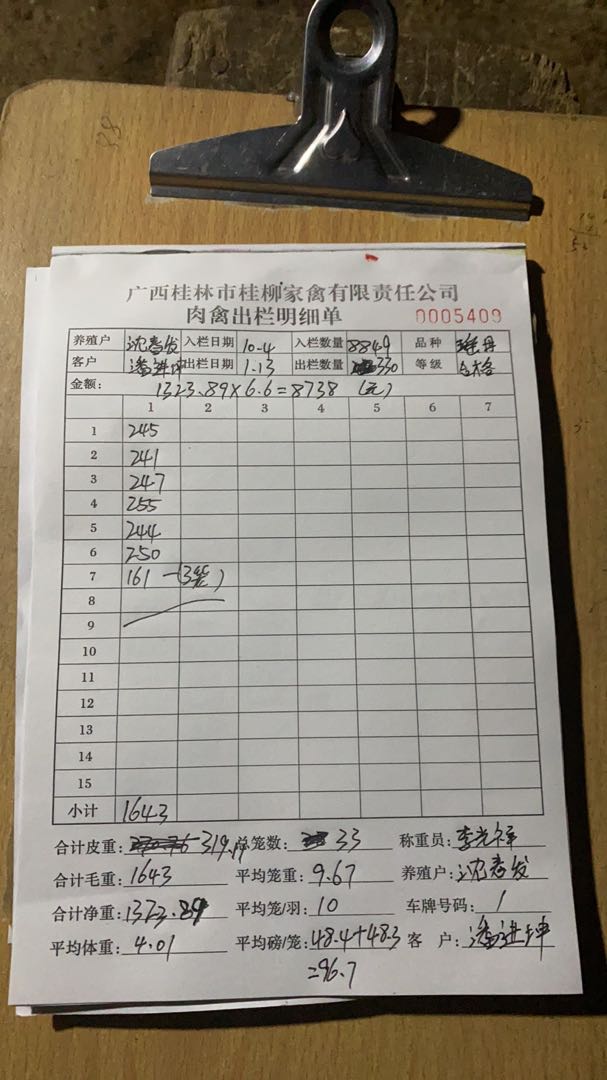 广西桂林市桂柳家禽有限责任公司
肉禽出栏明细单 0005409
养殖户 沈孝发 入栏日期 10.4 入栏数量 8849 品种
客户 潘进坤 出栏日期 1.13 出栏数量 330 等级 合格
金额: 1323.89×6.6=8738 (元)
1 2 3 4 5 6 7
1 245
2 241
3 247
4 255
5 244
6 250
7 161 —(3笼)
8
9
10
11
12
13
14
15
小计 1643
合计皮重: 319.11 总笼数: 33 称重员: 李光祥
合计毛重: 1643 平均笼重: 9.67 养殖户: 沈孝发
合计净重: 1323.89 平均笼/羽: 10 车牌号码: 1
平均体重: 4.01 平均磅/笼: 48.4+48.3 客户: 潘进坤
=96.7